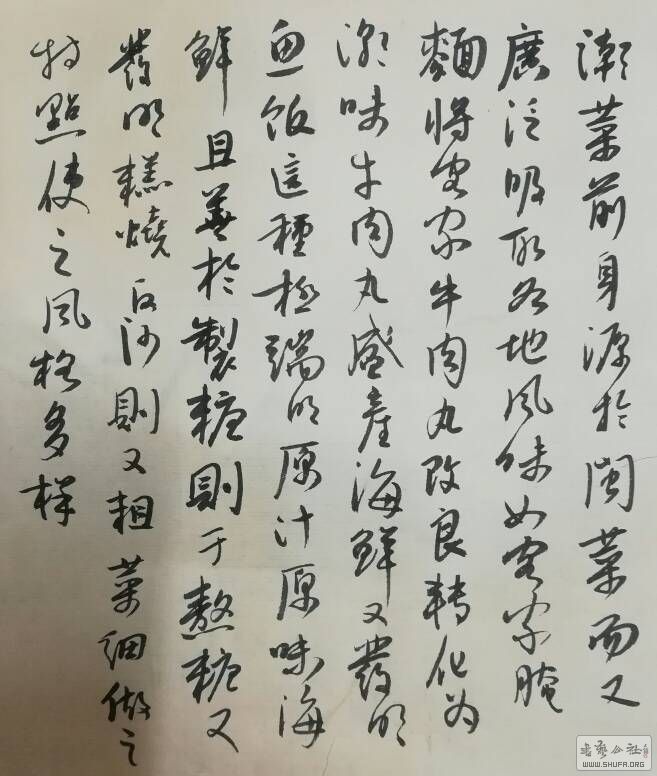 潮菜前身源於閩菜而又
廣泛吸取各地風味如客家腌
麵將客家牛肉丸改良轉化为
潮味牛肉丸盛產海鮮又發明
魚饭這種極端的原汁原味海
鮮且善於製糖則于熬糖又
發明糕燒反沙則又粗菜细做之
特點使之風格多样
書藝公社
WWW.SHUFA.ORG